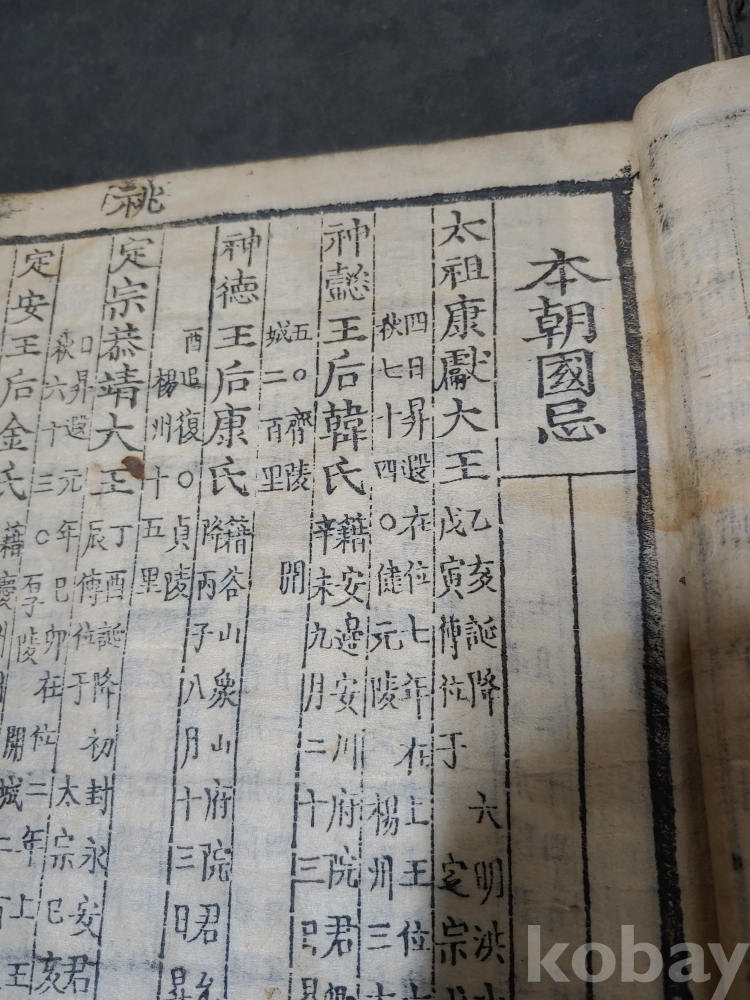 祧
本朝國忌
太祖康獻大王
乙亥誕降 大明洪
戊寅傳位于 定宗
四日昇遐在位七年在上王位
秋七十四○健元陵 楊州三十
神懿王后韓氏
籍安邊安川府院君
辛未九月二十三日昇
五○齊陵 開
城二百里
神德王后康氏
籍谷山象山府院君允
降丙子八月十三日昇
酉追復○貞陵
楊州十五里
定宗恭靖大王
丁酉誕降初封永安君
辰傳位于 太宗己亥
日昇遐元年己卯在位二年上王
秋六十三○厚陵 開城二百
定安王后金氏
籍慶州
kobay